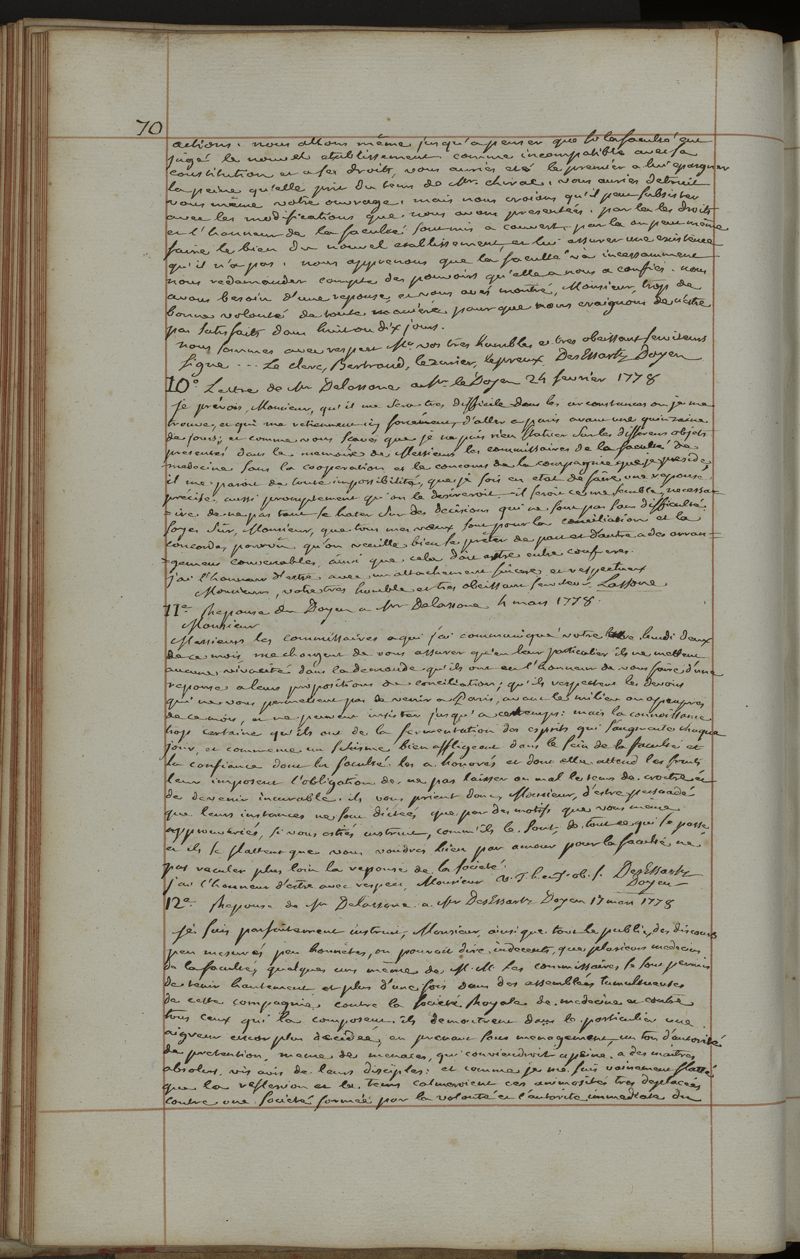 70
actions. nous allons même jusqu'a penser que si la faculté eut
jugé le nouvel etablissement comme incompatible avec sa
constitution et a ses droits, vous auries eté le premier a lui epargner
la peine qu'elle prit du tems de Mr. chirac. vous auries detruit
vous même votre ouvrage. mais nous croions qu'il peut subsister
avec les modifications que nous avons presentées. par la les droits
et l'honneur de la faculté sont mis a couvert, par la on peut même
faire le bien du nouvel etablissement, et lui assurer une existence
qu'il n'a pas. nous apprenons que la faculté va incessamment
nous redemander compte des pouvoirs qu'elle a nous a confiés. nous
avons besoin d'une reponse, et vous avés montré, Monsieur, trop de
bonne volonté de toute maniere pour que nous craignons de n'etre
pas satisfaits dans huit ou dix jours.
nous sommes avec respect Mr. vos tres humbles et tres obeissant serviteurs
Signé --- Le clerc, Bertrand, lepreux DesEssartz Doyen
10e Lettre de Mr Delassone a Mr. le Doyen 24 fevrier 1778
Je prévois, Monsieur, qu'il me sera tres difficile dans les circonstances ou je me
trouve, et qui me retiennent ici forcément, d'aller a paris avant une quinzaine
de jours; et comme vous scavés que je ne puis rien statuer sur les differens objets
presentés dans le memoire de Messieurs les commissaires de la faculté de
medecine sans la cooperation et le concours de la compagnie que je preside;
il me paroit de toute impossibilité, que je sois en etat de faire une reponse
précise aussi promptement qu'on le desireroit. il seroit ce me semble, necessai
=ire de ne pas tant se hater sur des decisions qui ne sont pas sans difficulté.
soyez sûr, Monsieur, que tous mes vœux sont pour la conciliation et la
concorde, pourvû qu'on veuille bien se prêter de part et d'autre a des arran=
=gemens convenables, ainsi que cela doit estre entre confreres.
j'ai l'honneur d'etre avec un attachement sincere et respectueux
Monsieur, votre tres humble et tres obeissant serviteur Lassone
11e. Reponse du Doyen a Mr Delassone 4 mars 1778.
Monsieur
Messieurs les commissaires a qui j'ai communiqué votre lettre lundi deux
de ce mois, me chargent de vous assurer qu'en leur particulier ils ne mettent
aucune vivacité dans la demande qu'ils ont eu l'honneur de vous faire d'une
reponse a leurs propositions de conciliation; qu'ils respectent les devoirs
qui ne vous permettent pas de venir a Paris, avant le milieu ou a peu près
de ce mois, et ne peuvent insister jusqu'a ce tems: mais la connoissance
trop certaine qu'ils ont de la fermentation des esprits qui s'augmente chaque
jour, et commence un schisme bien affligeant dans le sein de la faculté et
la confiance dont la faculté les a honorés et dont elle attend les fruits
leur imposent l'obligation de ne pas laisser au mal le tems de croitre et
de devenir incurable. ils vous prient donc, Monsieur, d'estre persuadé
que leurs instances ne sont dictées que par des motifs que vous meme
approuveriés, si vous estiés instruit, comme ils le sont, de tout ce qui se passe
et ils se flattent que vous voudrez bien par amour pour la faculté ne
pas reculer plus loin la reponse de la société.
j'ai l'honneur d'estre avec respect, Monsieur v. t. h. et t. ob. s. DesEssartz
Doyen
12e. Reponse de Mr Delassone a Mr DesEssartz Doyen 17 mars 1778
Je suis parfaitement instruit, Monsieur, ainsi que tout le public, des discours
peu mesurés peu honnêtes, on pouroit dire indecents, que plusieurs medecins
de la faculté, quelques uns même de M.M. les commissaires se sont permis
de tenir hautement et plus d'une fois dans des assemblées tumultueuses
de cette compagnie contre la societé Royale de medecine et contre
tous ceux qui la composent. ils demontrent dans le particulier une
aigreur encor plus decidée, en prenant sans menagement, un ton d'autorité
de pretention, meme de menaces, qui conviendroit a peine a des maitres
absolus, vis avis de leurs disciples: et comme je me suis vainement flatté
que la reflexion et le tems calmeroient ces animosités tres deplacées
contre une societé formée par la volonté et l'autorité immediate du